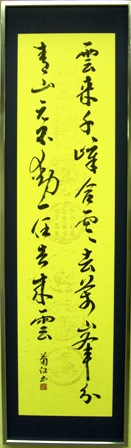 雲来千嶂合雲去萬峯分
青山元不動一任去来雲
江書